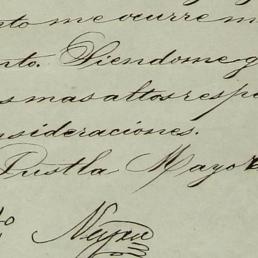 to me ocurre m
nto. Siendome g
s mas altos respe
nsideraciones.
Tustla Mayo